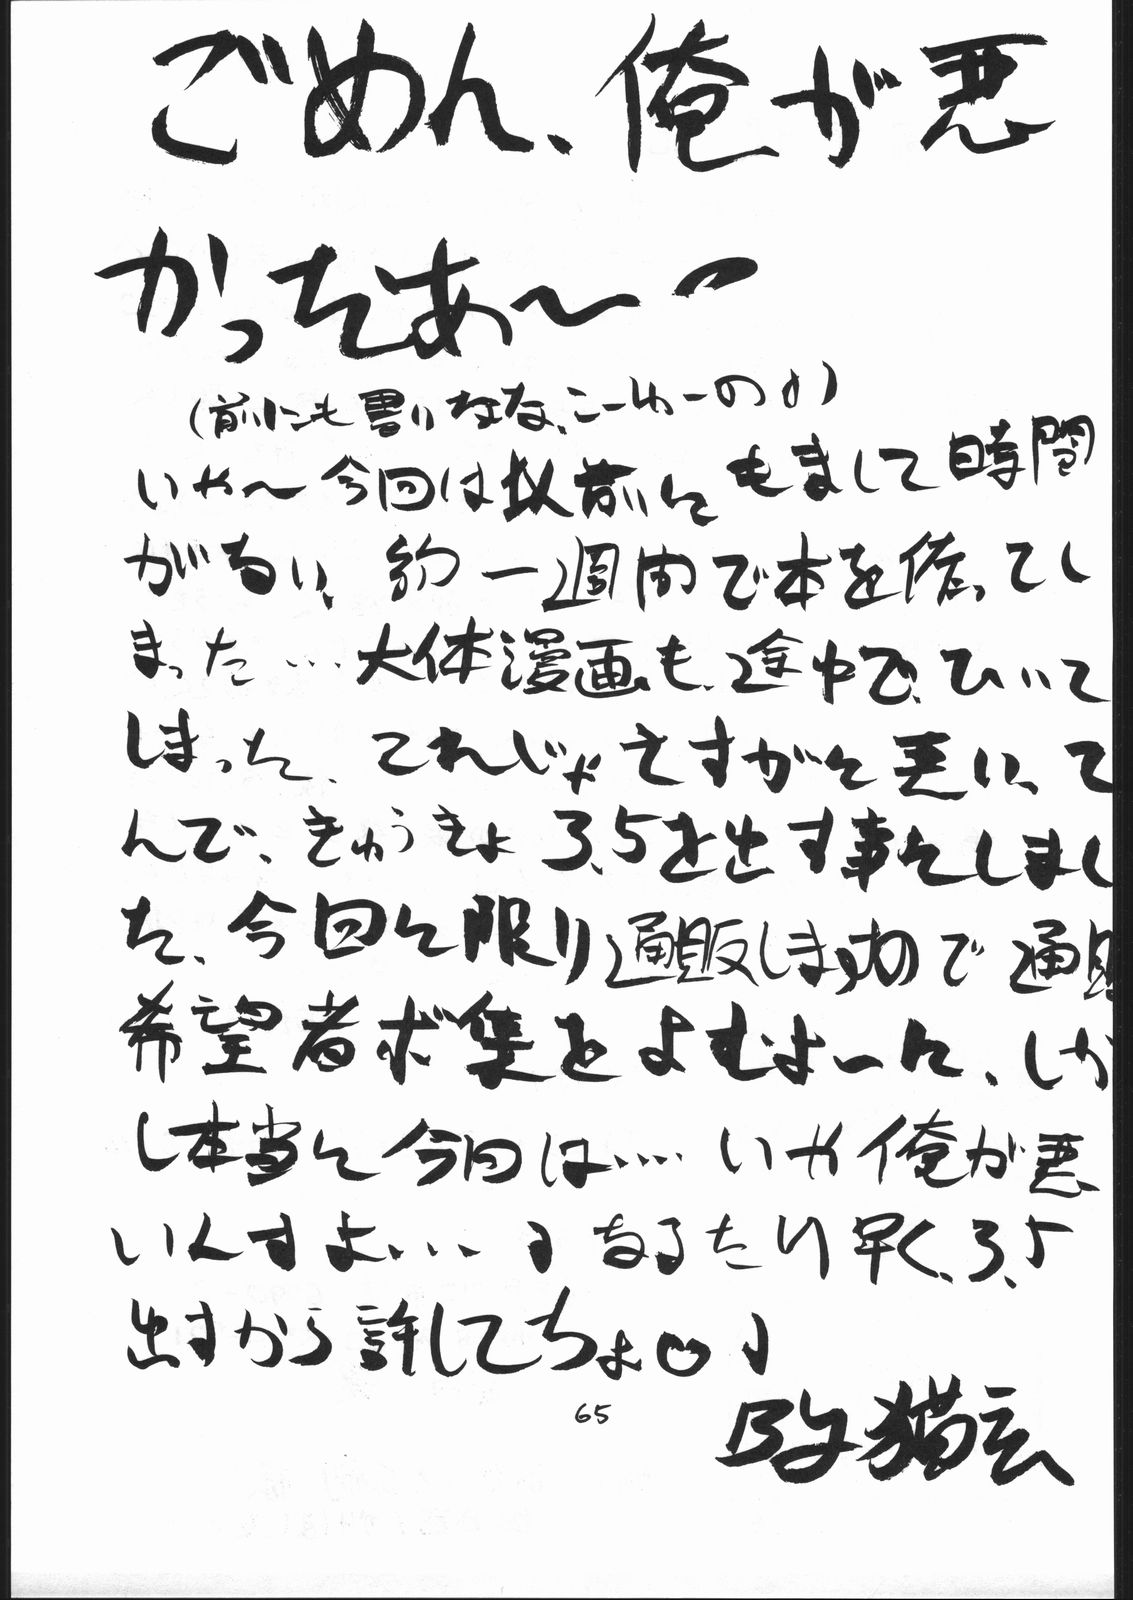 ごめん、俺が悪
かったあ〜
(前にも書いたな、こーゆーの♪)
いや〜今回は以前にもまして時間
がない、約一週間で本を作ってし
まった…大体漫画も、途中で、ひいて
しまった、これじゃさすがに悪い、て
んで、きゅうきょ3.5を出す事にしまし
た、今回に限り通販しますので通販
希望者ボ集をよむよーに、しか
し本当に今回は…いや俺が悪
いんすよ…♪なるたけ早く、3.5
出すから許してちょ♡♪
65
By猫玄